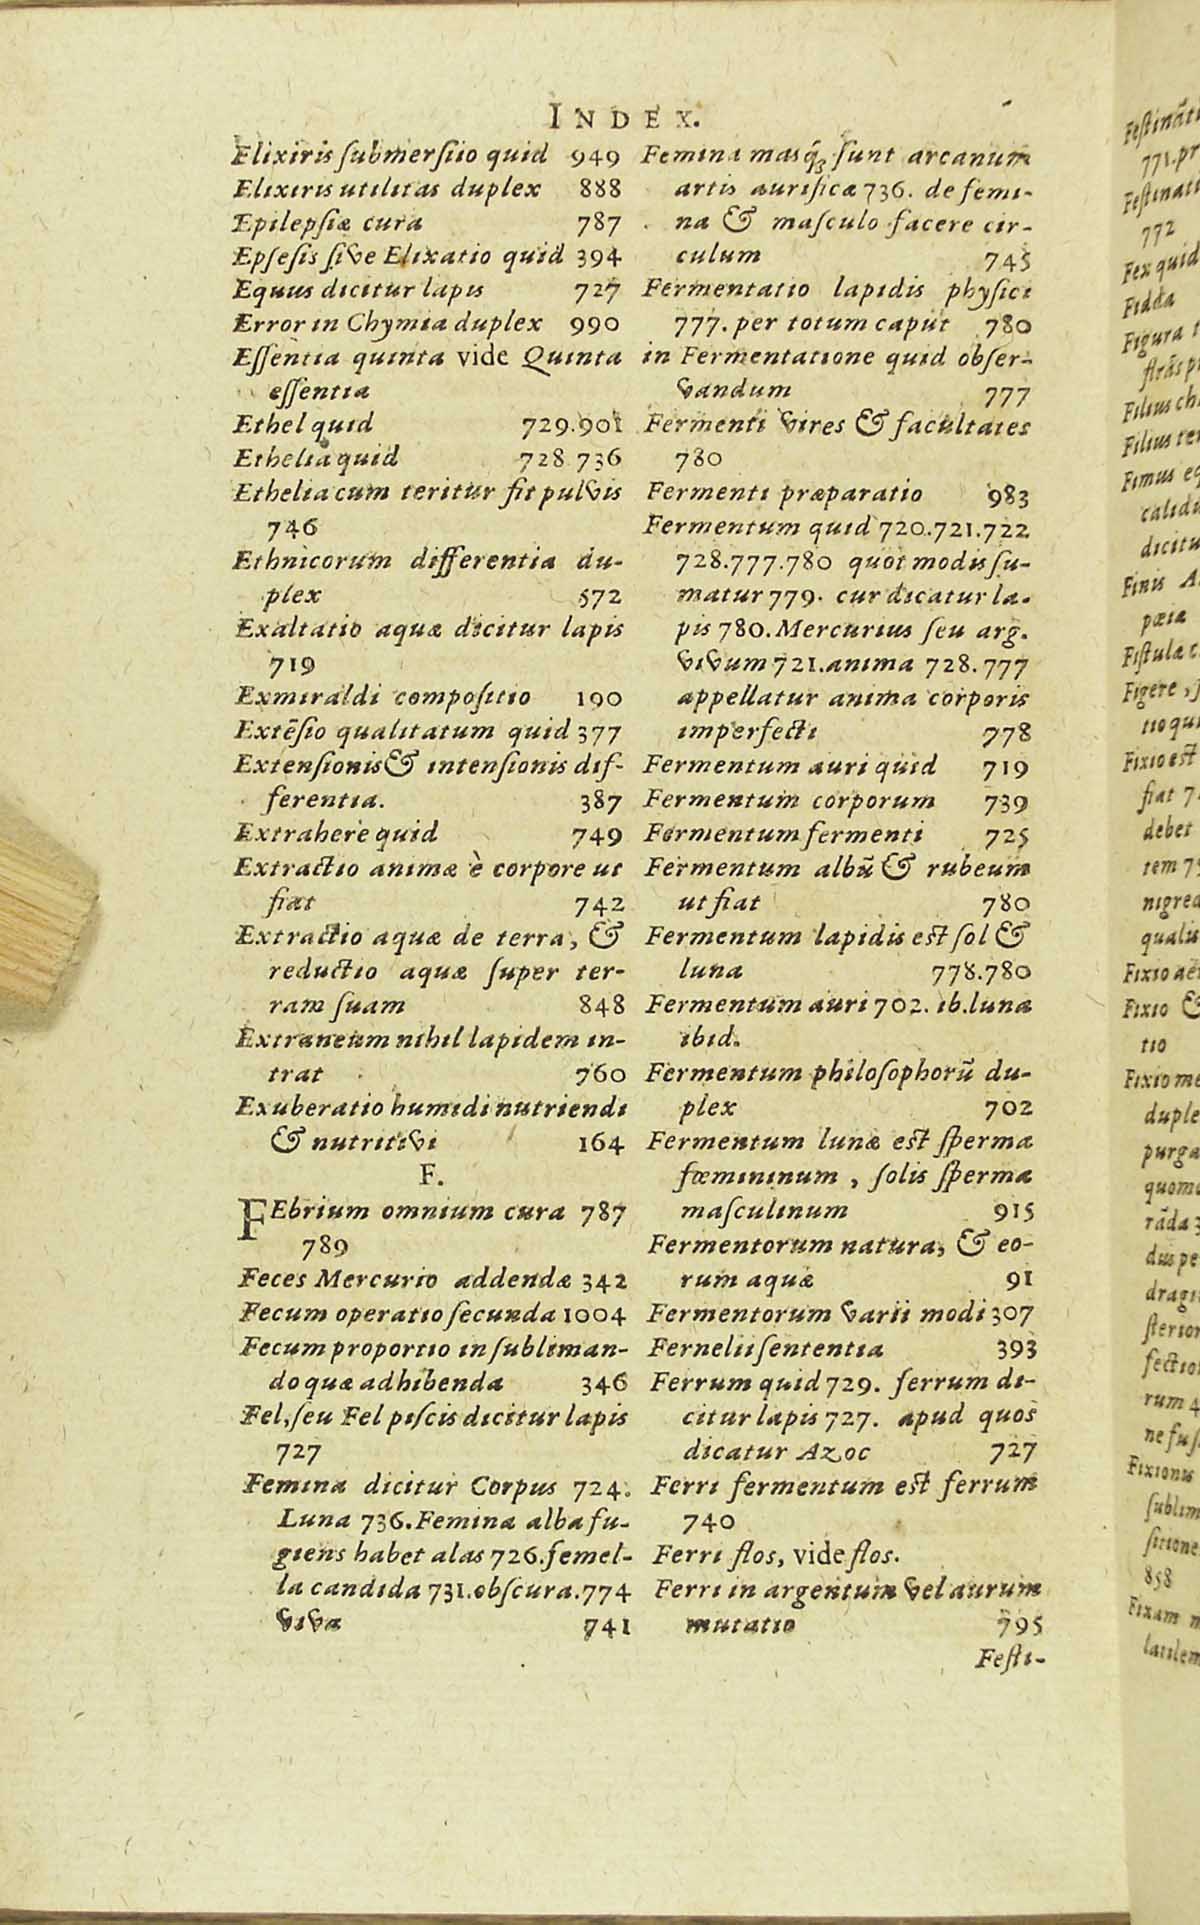 INDEX.
Elixiris ſubmerſiio quid 949
Elixiris utilitas duplex 888
Epilepſiæ cura 787
Epſeſis ſive Elixatio quid 394
Equus dicitur lapis 727
Error in Chymia duplex 990
Eſſentia quinta vide Quinta
eſſentia
Ethel quid 729.901
Ethelia quid 728 736
Ethelia cum teritur fit pulvis
746
Ethnicorum differentia du-
plex 572
Exaltatio aquæ dicitur lapis
719
Exmiraldi compoſitio 190
Extēſio qualitatum quid 377
Extenſionis & intenſionis dif-
ferentia. 387
Extrahere quid 749
Extractio animæ è corpore ut
fiat 742
Extractio aquæ de terra, &
reductio aquæ ſuper ter-
ram ſuam 848
Extraneum nihil lapidem in-
trat 760
Exuberatio humidi nutriendi
& nutritivi 164
F.
FEbrium omnium cura 787
789
Feces Mercurio addendæ 342
Fecum operatio ſecunda 1004
Fecum proportio in ſubliman-
do quæ adhibenda 346
Fel, ſeu Fel piſcis dicitur lapis
727
Femina dicitur Corpus 724.
Luna 736. Femina alba fu-
giens habet alas 726. femel-
la candida 731. obſcura. 774
viva 741
Femina masq́; ſunt arcanum
artis aurificæ 736. de femi-
na & maſculo facere cir-
culum 745
Fermentatio lapidis phyſici
777. per totum caput 780
in Fermentatione quid obſer-
vandum 777
Fermenti vires & facultates
780
Fermenti præparatio 983
Fermentum quid 720.721.722
728.777.780 quot modis ſu-
matur 779. cur dicatur la-
pis 780. Mercurius ſeu arg.
vivum 721. anima 728.777
appellatur anima corporis
imperfecti 778
Fermentum auri quid 719
Fermentum corporum 739
Fermentum fermenti 725
Fermentum albū & rubeum
ut fiat 780
Fermentum lapidis eſt ſol &
luna 778.780
Fermentum auri 702. ib. luna
ibid.
Fermentum philoſophorū du-
plex 702
Fermentum lunæ eſt ſperma
fœmininum, ſolis ſperma
maſculinum 915
Fermentorum natura, & eo-
rum aquæ 91
Fermentorum varii modi 307
Fernelii ſententia 393
Ferrum quid 729. ferrum di-
citur lapis 727. apud quos
dicatur Azoc 727
Ferri fermentum eſt ferrum
740
Ferri flos, vide flos.
Ferri in argentum vel aurum
mutatio 795
Feſti-
772
Fex quid
Fidda